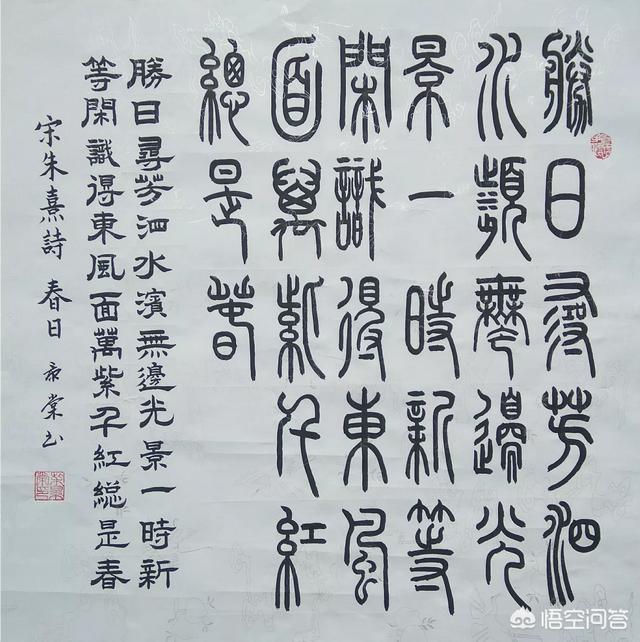 勝日尋芳泗
水濱無邊光
景一時新等
閑識得東風
面萬紫千紅
總是春
勝日尋芳泗水濱無邊光景一時新
等閑識得東風面萬紫千紅総是春
宋朱熹詩 春日 棠书
悟空问答